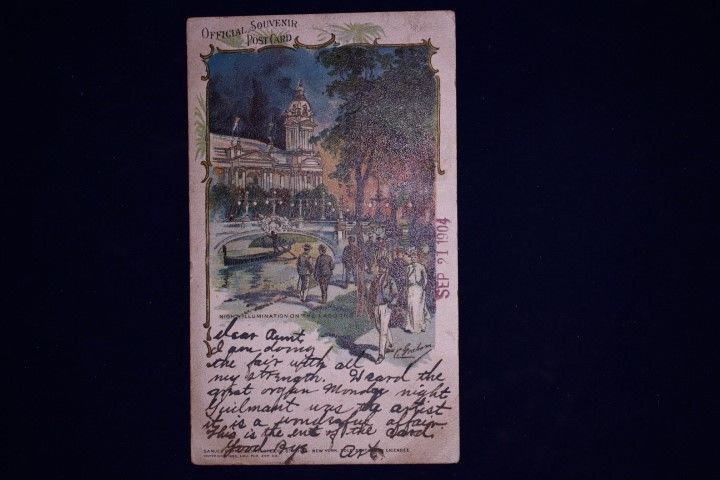 OFFICIAL SOUVENIR
POST CARD
SEP 21 1904
NIGHT ILLUMINATION ON THE LAGOONS
Dear Aunt
I am doing
the fair with all
my strength. Heard the
great organ Monday night
Guilmant was the artist
it is a wonderful affair.
This is the end of the card.
Good Bye Art.
SAMUEL NEW YORK, SOLE LICENSEE